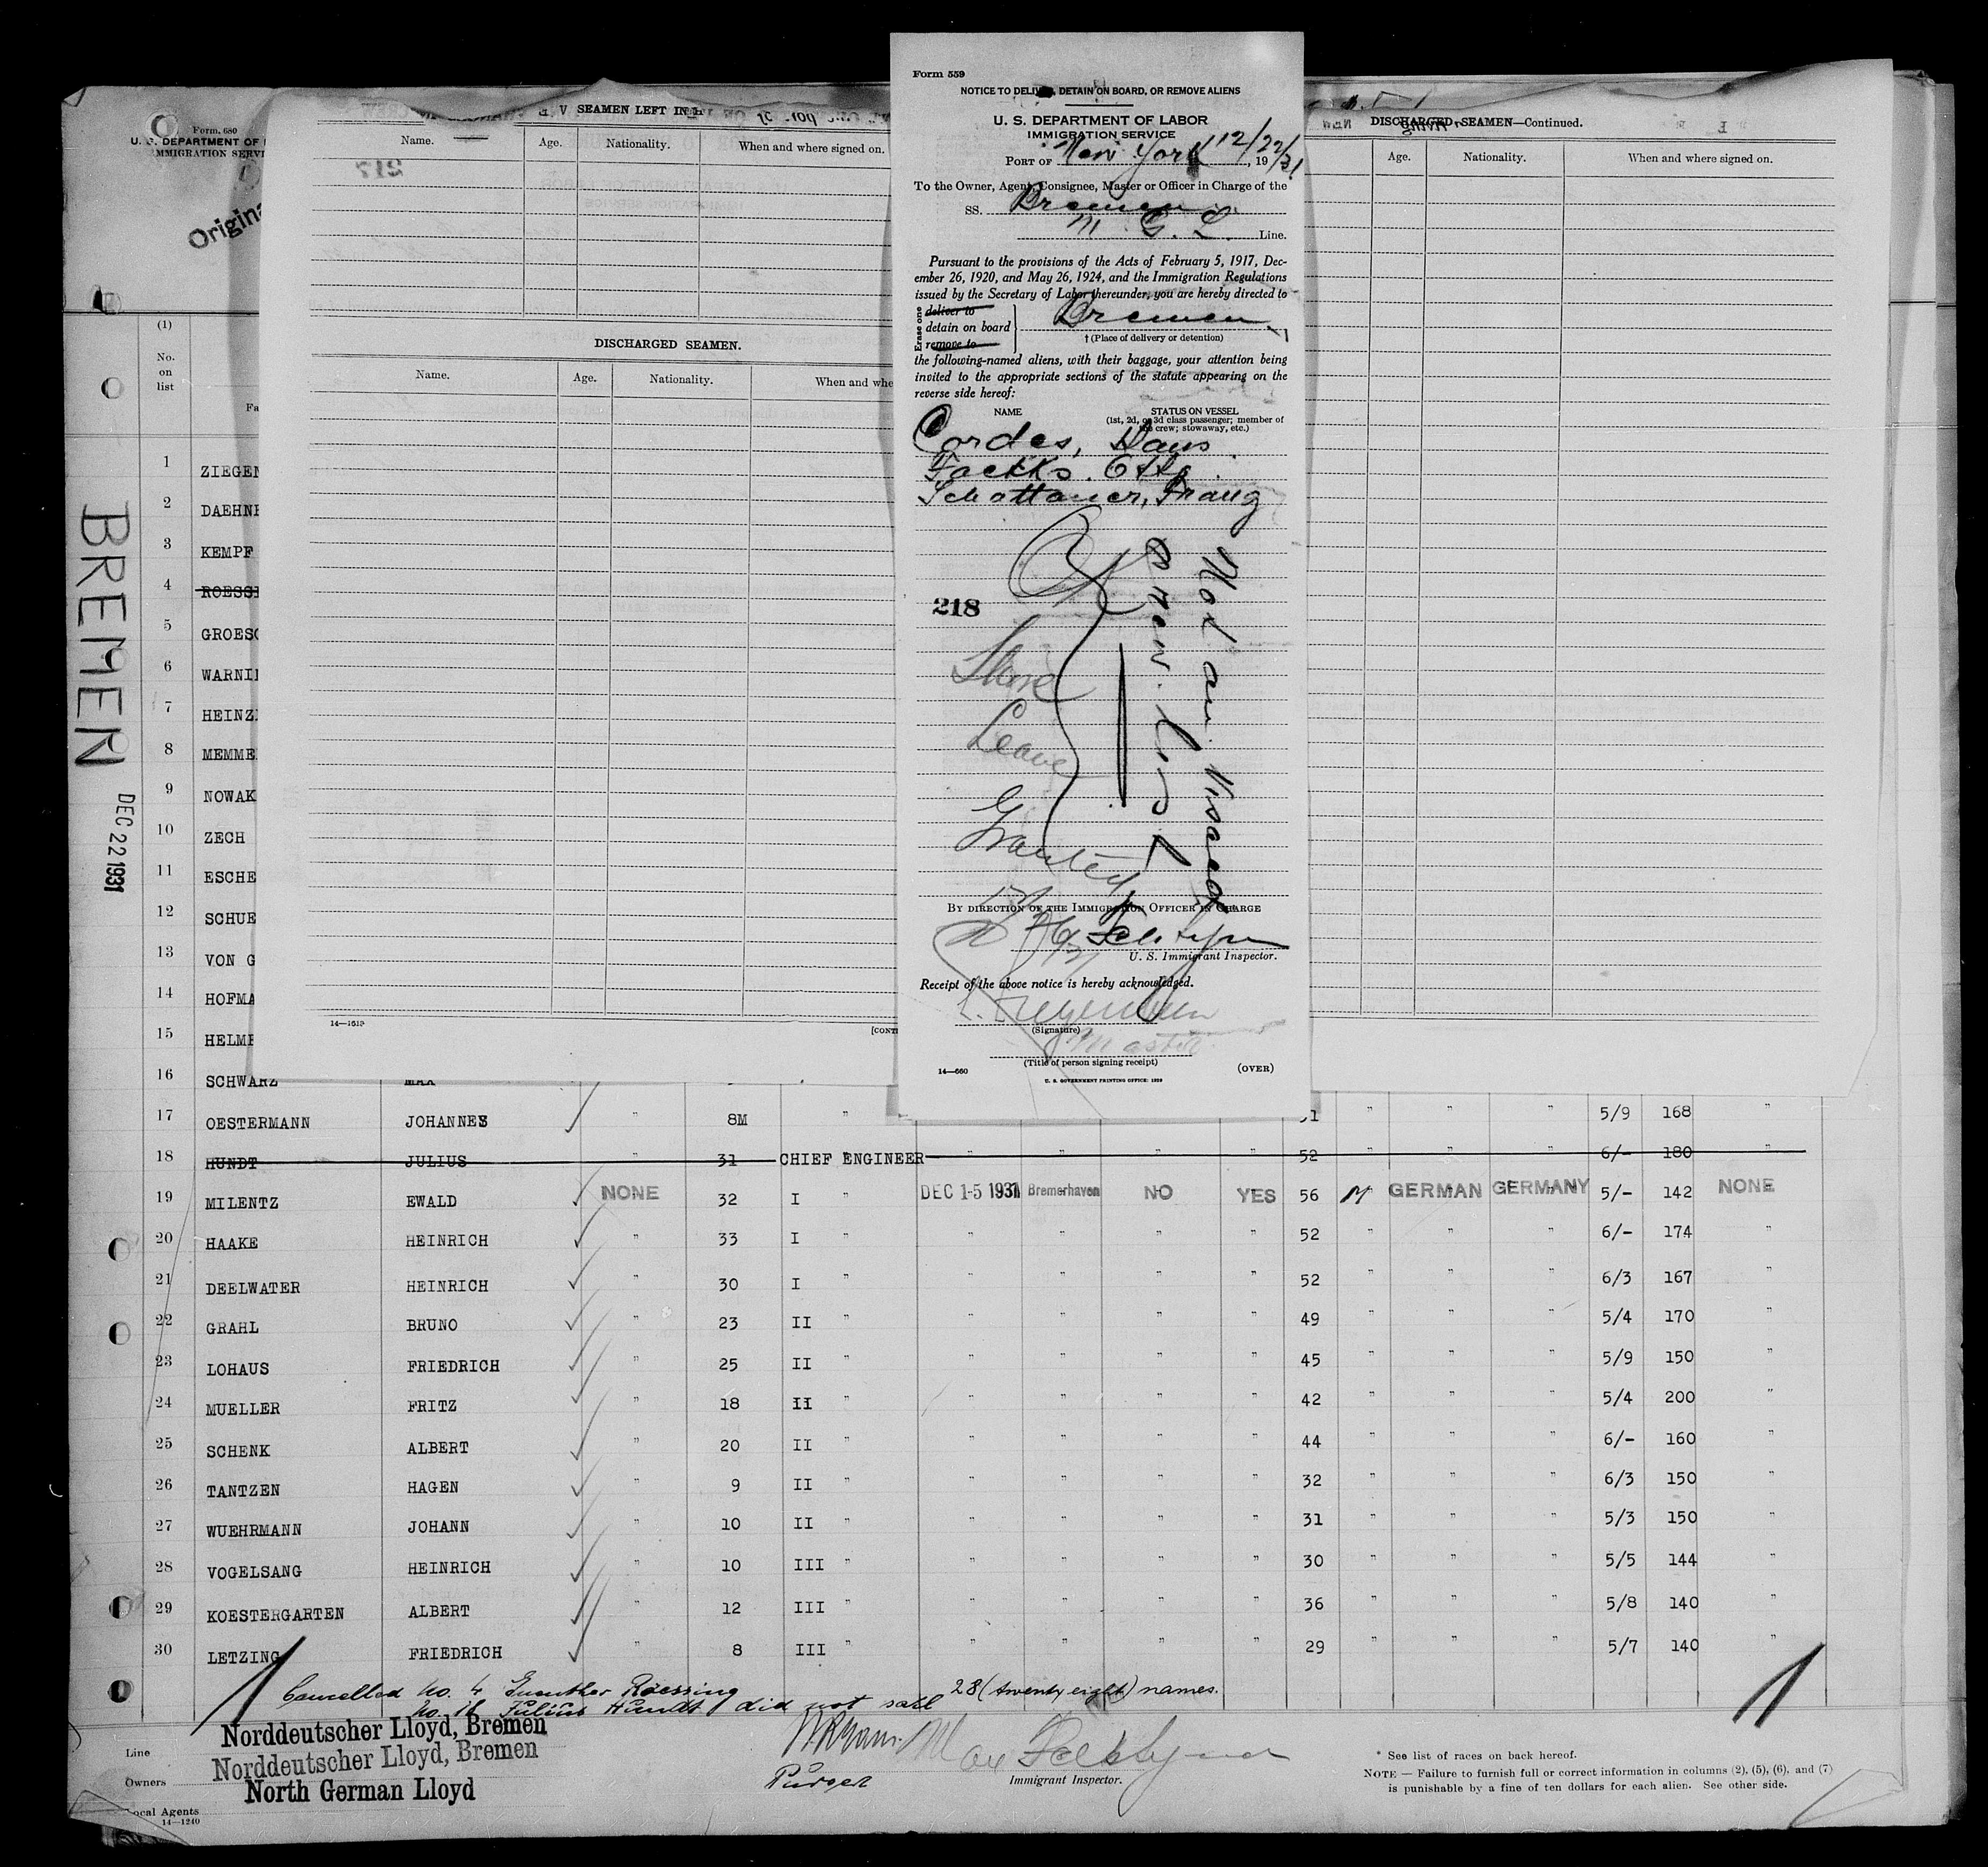 Form. 680
U. S. DEPARTMENT OF
IMMIGRATION SERVI
Origina
(1)
No.
on
list
Fa
BREMEN
DEC 22 1931
1 ZIEGEN
2 DAEHNE
3 KEMPF
4 ROESSI
5 GROESC
6 WARNI
7 HEINZ
8 MEMME
9 NOWAK
10 ZECH
11 ESCHE
12 SCHUE
13 VON G
14 HOFMA
15 HELME
16 SCHWARZ MAX
SEAMEN LEFT IN H
Name. Age. Nationality. When and where signed on.
217
DISCHARGED SEAMEN.
Name. Age. Nationality. When and whe
14—1619
[CONT
DISCHARGED SEAMEN—Continued.
Age. Nationality. When and where signed on.
Form 559
NOTICE TO DELIVER, DETAIN ON BOARD, OR REMOVE ALIENS
U. S. DEPARTMENT OF LABOR
IMMIGRATION SERVICE
PORT OF New York 12/22, 19 31
To the Owner, Agent, Consignee, Master or Officer in Charge of the
SS. Bremen
N. G. L. Line.
Pursuant to the provisions of the Acts of February 5, 1917, Dec-
ember 26, 1920, and May 26, 1924, and the Immigration Regulations
issued by the Secretary of Labor thereunder, you are hereby directed to
Erase one
deliver to
detain on board Bremen
remove to
† (Place of delivery or detention)
the following-named aliens, with their baggage, your attention being
invited to the appropriate sections of the statute appearing on the
reverse side hereof:
NAME STATUS ON VESSEL
(1st, 2d, or 3d class passenger; member of
the crew; stowaway, etc.)
Cordes, Hans
Fackks. Otto
Schattauer, Franz
Not on visaed
crew list
218
OK
Shore
Leave
Granted
BY DIRECTION OF THE IMMIGRATION OFFICER IN CHARGE
U. S. Immigrant Inspector.
Receipt of the above notice is hereby acknowledged.
(Signature)
Master
(Title of person signing receipt)
14—660 (OVER)
U. S. GOVERNMENT PRINTING OFFICE: 1929
17 OESTERMANN JOHANNES " 8M " 31 " " " 5/9 168 "
18 HUNDT JULIUS " 31 CHIEF ENGINEER " " " " 52 6/- 180
19 MILENTZ EWALD NONE 32 I " DEC 15 1931 Bremerhaven NO YES 56 M GERMAN GERMANY 5/- 142 NONE
20 HAAKE HEINRICH " 33 I " " " " " 52 " " " 6/- 174 "
21 DEELWATER HEINRICH " 30 I " " " " " 52 " " " 6/3 167 "
22 GRAHL BRUNO " 23 II " " " " " 49 " " " 5/4 170 "
23 LOHAUS FRIEDRICH " 25 II " " " " " 45 " " " 5/9 150 "
24 MUELLER FRITZ " 18 II " " " " " 42 " " " 5/4 200 "
25 SCHENK ALBERT " 20 II " " " " " 44 " " " 6/- 160 "
26 TANTZEN HAGEN " 9 II " " " " " 32 " " " 6/3 150 "
27 WUEHRMANN JOHANN " 10 II " " " " " 31 " " " 5/3 150 "
28 VOGELSANG HEINRICH " 10 III " " " " " 30 " " " 5/5 144 "
29 KOESTERGARTEN ALBERT " 12 III " " " " " 36 " " " 5/8 140 "
30 LETZING FRIEDRICH " 8 III " " " " " 29 " " " 5/7 140 "
Cancelled No. 4 Guenther Roessing
No. 18 Julius Hundt did not sail 28 (twenty eight) names.
Line Norddeutscher Lloyd, Bremen
Owners Norddeutscher Lloyd, Bremen
Local Agents North German Lloyd
14—1240
Purser
Immigrant Inspector.
* See list of races on back hereof.
NOTE — Failure to furnish full or correct information in columns (2), (5), (6), and (7)
is punishable by a fine of ten dollars for each alien. See other side.